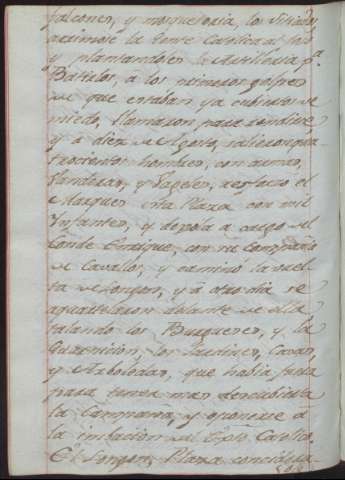 falcones, y mosqueteria, los sitiados
arrimose la Gente Catolica al foso
y plantandoles la Artilleria pª
Batirlos, a los primeros golpes
de que estaban ya cubiertos de
miedo, llamaron para rendirse
y a diez de Agosto, salieron qua
trocientos hombres, con armas,
Vanderas, y Vagages, reforzó el
Marques esta Plaza con mil
Infantes, y dexola a cargo del
Conde Enrique, con su Compañia
de Cavallos, y caminó la vuelta
de Longon, y a otro dia se
aquartelaron delante de ella
talando los Burgueses, y la
Guarnicion, los Jardines, Casas,
y Arboledas, que habia fuera
para tener mas descubierta
la Campaña, y oponerse a
la imbacion del Expto Catolico.
Es Longon, Plaza considera-